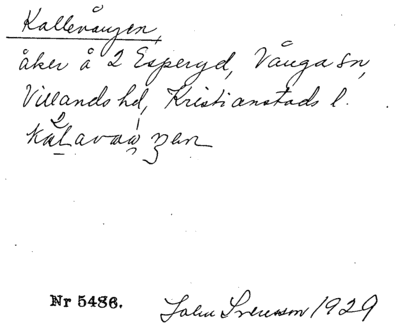 Kallevången,
åker å 2 Esperyd, Vånga sn,
Villands hd, Kristianstads l.
Nr 5486. John Svensson 1929